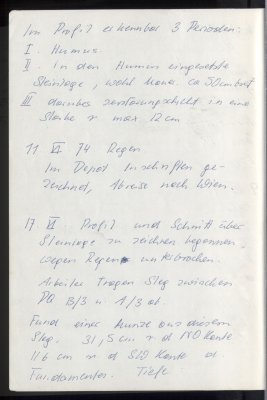 Im Profil erkennbar 3 Perioden:
I. Humus
II. In den Humus eingesetzte
Steinlage, wohl Mauer. ca 50 cm breit
III darüber zerstörungsschicht in eine
Stärke v max 12 cm
11 VI 74 Regen
Im Depot Inschriften ge-
zeichnet, Abreise nach Wien.
17. VI Profil und Schnitt über
Steinlage zu zeichnen begonnen,
wegen Regen unterbrochen.
Arbeiter tragen Steg zwischen
PQ B/3 u. A/3 ab.
Fund einer Münze aus diesem
Steg. 31,5 cm v d NO Kante
116 cm v d SW Kante d.
Fundamentes. Tiefe